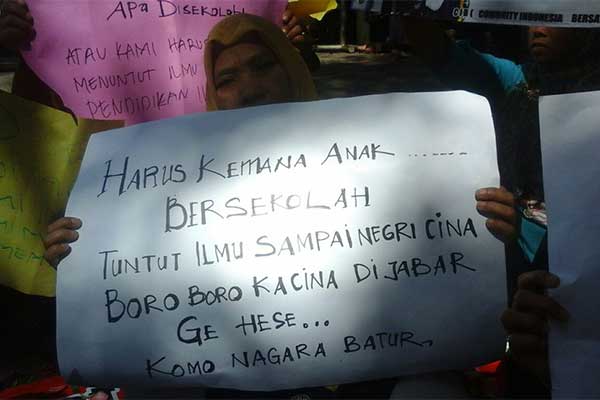 APA DISEKOLAH
ATAU KAMI HARUS
MENUNTUT ILMU
PENDIDIKAN
COMUNITY INDONESIA BERSA
HARUS KEMANA ANAK ........
BERSEKOLAH
TUNTUT ILMU SAMPAI NEGRI CINA
BORO BORO KA CINA DI JABAR
GE HESE...
KOMO NAGARA BATUR.